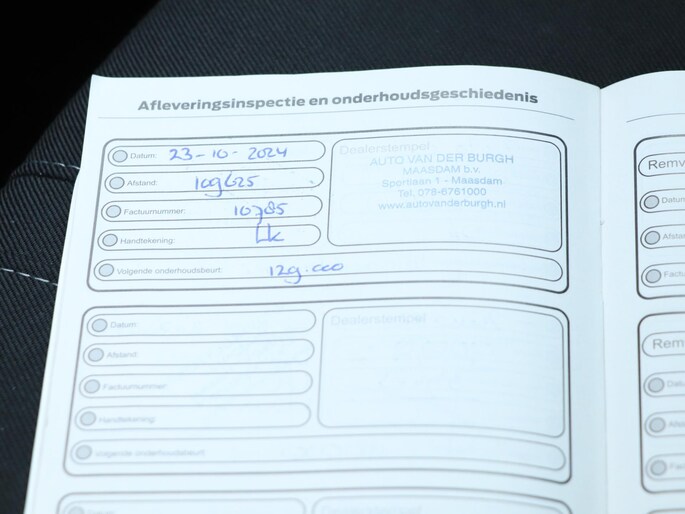 Afleveringsinspectie en onderhoudsgeschiedenis
Datum: 23-10-2024
Afstand: 109625
Factuurnummer: 10785
Handtekening:
Volgende onderhoudsbeurt: 129.000
Dealerstempel
AUTO VAN DER BURGH
MAASDAM b.v.
Sportlaan 1 - Maasdam
Tel. 078-6761000
www.autovanderburgh.nl
Datum:
Afstand:
Factuurnummer:
Handtekening:
Volgende onderhoudsbeurt:
Dealerstempel
Datum:
Dealerstempel
Remv
Datum
Afsta
Factu
Rem
Datu
Afsta
Fac